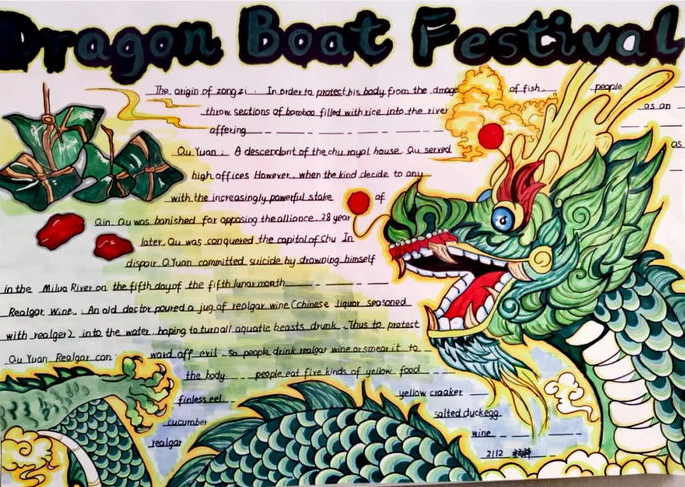 Dragon Boat Festival
The origin of zongzi : In order to protect his body from the dmage of fish people
throw sections of bamboo filled with rice into the river as an
offering
Qu Yuan : A descendant of the chu royal house Qu served as
high offices However, when the kind decide to any
with the increasingly powerful stake of
Qin. Qu was banished for opposing the alliance. 28 year
later. Qu was conquered the capital of Chu In
dispair Q.Yuan committed suicide by drowning himself
in the Milua River on the fifth day of the fifth lunar month
Realgar Wine. An old doctor poured a jug of realgar wine (Chinese liquor seasoned
with realger) into the water hoping to turn all aquatic beasts drunk. Thus to protect
Qu Yuan Realgar can ward off evil. So people drink realgar wine or smear it to
the body people eat five kinds of yellow food
finless eel yellow croaker
cucumber salted duck egg
realgar wine
2112